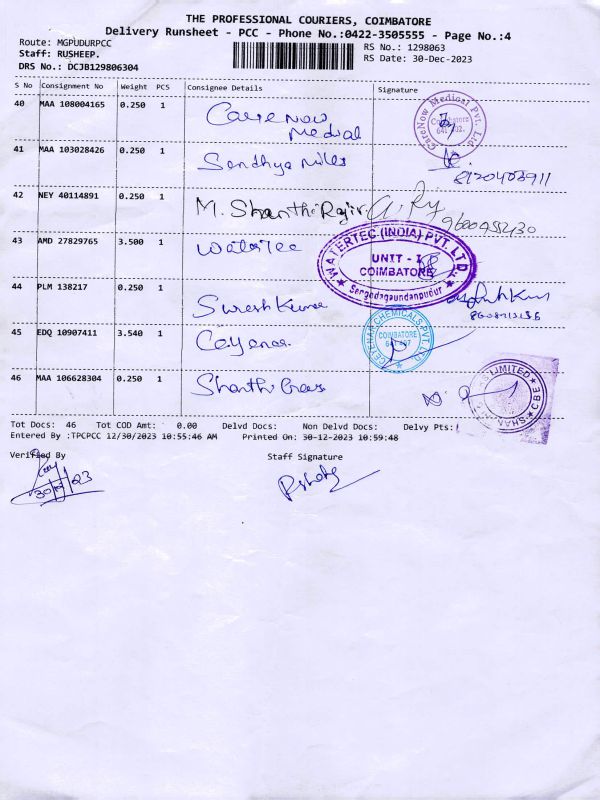 THE PROFESSIONAL COURIERS, COIMBATORE
Delivery Runsheet - PCC - Phone No.:0422-3505555 - Page No.:4
Route: MGPUDURPCC
RS No.: 1298063
Staff: RUSHEEP.
RS Date: 30-Dec-2023
DRS No.: DCJB129806304
S No Consignment No Weight PCS Consignee Details Signature
40 MAA 108004165 0.250 1 CareNow Medical
CareNow Medical Pvt. Ltd. Coimbatore
41 MAA 103028426 0.250 1 Sandhya Mills
42 NEY 40114891 0.250 1 M. Shanthi
43 AMD 27829765 3.500 1 Watertec
WATERTEC (INDIA) PVT. LTD.
UNIT - I
COIMBATORE
44 PLM 138217 0.250 1 Suresh Kumar
45 EDQ 10907411 3.540 1 Ceyenar
CEYENAR CHEMICALS PVT. LTD
COIMBATORE
46 MAA 106628304 0.250 1 Shanthi Gears
LIMITED CBE
Tot Docs: 46 Tot COD Amt: 0.00 Delvd Docs: Non Delvd Docs: Delvy Pts:
Entered By :TPCPCC 12/30/2023 10:55:46 AM Printed On: 30-12-2023 10:59:48
Verified By Staff Signature